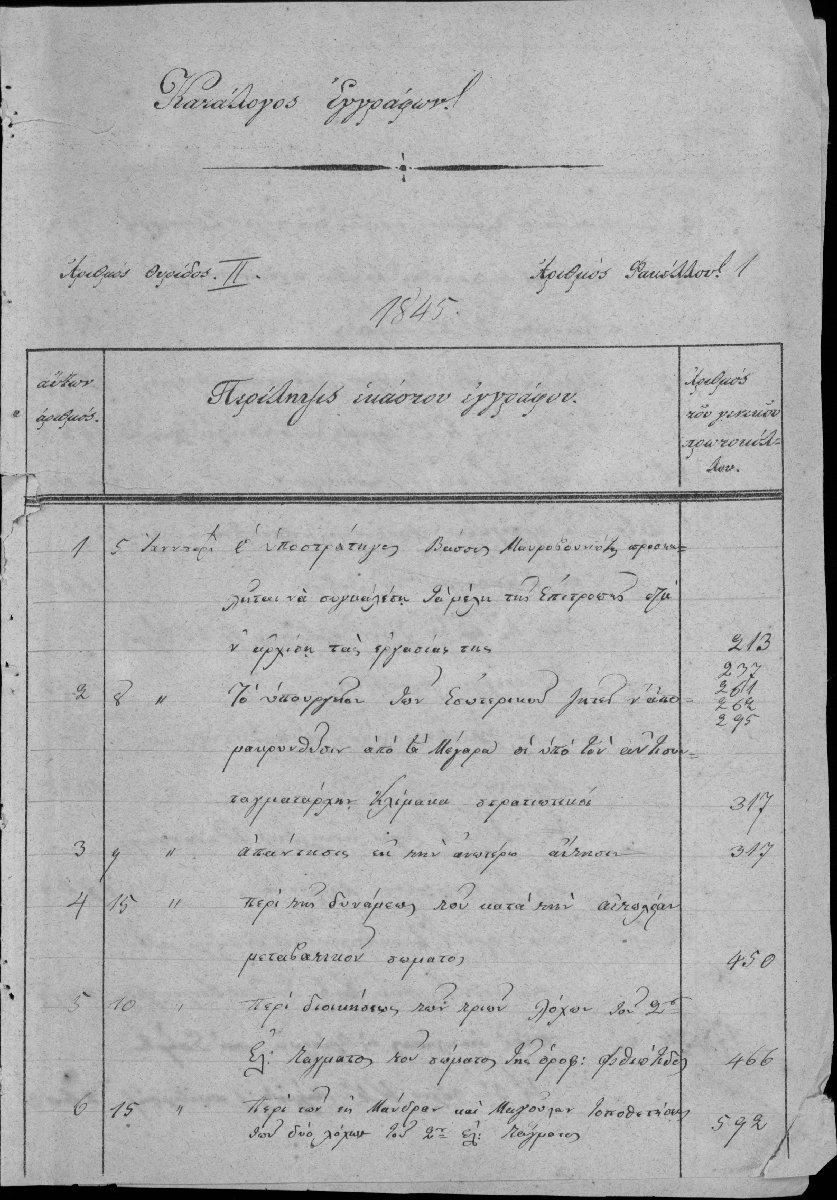 Κατάλογος ἐγγράφων.
Ἀριθμός θυρίδος. II.
Ἀριθμός Φακέλλου. 1
1845.
αὔξων
ἀριθμός.
Περίληψις ἑκάστου ἐγγράφου.
Ἀριθμός
τοῦ γενικοῦ
πρωτοκόλ-
λου.
1 5 Ἰανουαρ: Ὁ ὑποστράτηγος Βάσσος Μαυροβουνιώτης προσκα-
λῆται νὰ συγκαλέσῃ τὰ μέλη τῆς ἐπιτροπῆς
ν' ἀρχίσῃ τὰς ἐργασίας της 213
237
261
262
295
2 8 " Τὸ ὑπουργεῖον τῶν Ἐσωτερικῶν ζητεῖ ν' ἀπο-
μακρυνθῶσιν ἀπὸ τὰ Μέγαρα οἱ ὑπὸ τὸν ἀντισυν-
ταγματάρχην Κλίμακα στρατιωτικοί 317
3 9 " ἀπάντησις εἰς τὴν ἀνωτέρω αἴτησιν 317
4 15 " περὶ τῆς δυνάμεως τοῦ κατὰ τὴν
μεταβατικοῦ σώματος 450
5 10 " περὶ διοικήσεως τῶν τριῶν λόχων τοῦ 2ου
Ἐλ: τάγματος τοῦ σώματος τῆς ὀροφ: Φθιώτιδος 466
6 15 " Περὶ τῶν εἰς Μάνδραν καὶ Μαγούλαν τοποθετήσεως
τῶν δύο λόχων τοῦ 2ου Ἐλ: τάγματος 592